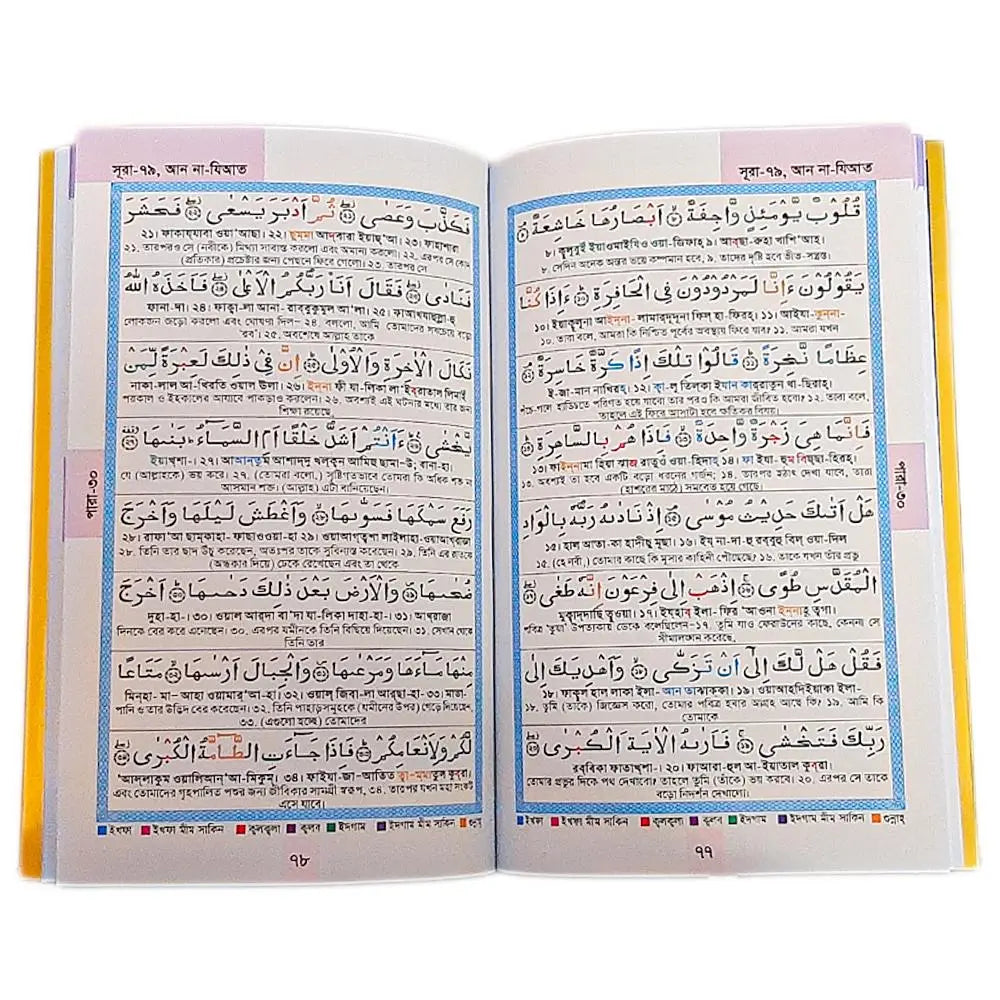 সূরা-৭৯, আন না-যিআত
قُلُوْبٌ يَّوْمَئِذٍ وَّاجِفَةٌ ۙ اَبْصَارُهَا خَاشِعَةٌ ۘ
৮। ক্বুলূবুঁই ইয়াওমাইযিঁও ওয়া-জিফাহ্ ৯। আবছা-রুহা খাশি'আহ্।
৮. সেদিন অনেক অন্তর ভয়ে কম্পমান হবে, ৯. তাদের দৃষ্টি হবে ভীত-সন্ত্রস্ত।
يَقُوْلُوْنَ ءَاِنَّا لَمَرْدُوْدُوْنَ فِى الْحَافِرَةِ ؕ ءَاِذَا كُنَّا
১০। ইয়াক্বূলূনা আইন্না- লামারদূদূনা ফিল্ হা-ফিরহ্। ১১। আইযা- কুন্না-
১০. তারা বলে, আমরা কি নিশ্চিত পূর্বের অবস্থায় ফিরে যাব? ১১. আমরা যখন
عِظَامًا نَّخِرَةً ؕ قَالُوْا تِلْكَ اِذًا كَرَّةٌ خَاسِرَةٌ ۘ
ই-জা-মান নাখিরহ্। ১২। ক্বা-লূ তিলকা ইযান কার্রাতুন খা-ছিরাহ্।
পঁচে-গলে হাড্ডিতে পরিণত হয়ে যাবো তার পরও কি আমরা জীবিত হবো? ১২. তারা বলে,
তাহলে এই ফিরে আসাটা হবে ক্ষতিকর বিষয়।
فَاِنَّمَا هِىَ زَجْرَةٌ وَّاحِدَةٌ ۙ فَاِذَا هُمْ بِالسَّاهِرَةِ ؕ
১৩। ফাইন্নামা হিয়া ঝাজ্ রাতুওঁ ওয়া-হিদাহ্ ১৪। ফা ইযা- হুম বিছ্ছা-হিরহ্।
১৩. অবশ্যই তা হবে একটি বড়ো ধরনের গর্জন; ১৪. তারপর হঠাৎ দেখা যাবে, তারা
(হাশরের মাঠে) সমবেত হয়ে গেছে।
هَلْ اَتٰىكَ حَدِيْثُ مُوْسٰى ۘ اِذْ نَادٰىهُ رَبُّهٗ بِالْوَادِ
১৫। হাল আতা-কা হাদীছু মূছা। ১৬। ইয্ না-দা-হু রব্বুহূ বিল্ ওয়া-দিল
১৫. (হে নবী,) তোমার কাছে কি মূসার কাহিনী পৌঁছেছে? ১৬. তাকে যখন তাঁর প্রভু
الْمُقَدَّسِ طُوًى ۚ اِذْهَبْ اِلٰى فِرْعَوْنَ اِنَّهٗ طَغٰى ۖ
মুক্বাদ্দাছি তুওয়া। ১৭। ইয্হাব্ ইলা- ফির 'আওনা ইন্নাহূ ত্বগা।
পবিত্র 'তুয়া' উপত্যকায় ডেকে বলেছিলেন-১৭. তুমি যাও ফেরাউনের কাছে, কেননা সে
সীমালঙ্ঘন করেছে,
فَقُلْ هَلْ لَّكَ اِلٰٓى اَنْ تَزَكّٰى ۙ وَاَهْدِيَكَ اِلٰى
১৮। ফাকুল হাল লাকা ইলা- আন তাঝাক্কা। ১৯। ওয়াআহদিইয়াকা ইলা-
১৮. তুমি (তাকে) জিজ্ঞেস করো, তোমার পবিত্র হবার আগ্রহ আছে কি? ১৯. আমি কি
তোমাকে
رَبِّكَ فَتَخْشٰى ۚ فَاَرٰىهُ الْاٰيَةَ الْكُبْرٰى ۖ
রব্বিকা ফাতাখ্শা-। ২০। ফাআরা-হুল আ-ইয়াতাল কুবরা।
তোমার প্রভুর দিকে পথ দেখাবো? তাহলে তুমি (তাঁকে) ভয় করবে। ২০. এরপর সে তাকে
বড়ো নিদর্শন দেখালো।
ইখফা ইখফা মীম সাকিন ক্বলক্বলা ক্বলব ইদগাম ইদগাম মীম সাকিন গুন্নাহ্
৭৭
পারা-৩০
সূরা-৭৯, আন না-যিআত
فَكَذَّبَ وَعَصٰى ۖ ثُمَّ اَدْبَرَ يَسْعٰى ۖ فَحَشَرَ
২১। ফাকায্যাবা ওয়া 'আছা। ২২। ছুম্মা আদবারা ইয়াছ্'আ। ২৩। ফাহাশারা
২১. তারপরও সে (নবীকে) মিথ্যা সাব্যস্ত করলো এবং অমান্য করলো। ২২. এরপর সে কোন
(প্রতিকার) প্রচেষ্টার জন্য পেছনে ফিরে গেলো। ২৩. তারপর সে
فَنَادٰى ۖ فَقَالَ اَنَا رَبُّكُمُ الْاَعْلٰى ۖ فَاَخَذَهُ اللّٰهُ
ফানা-দা। ২৪। ফাক্বা-লা আনা- রাব্বুকুমুল আ'লা। ২৫। ফাআখাযাহুল্লা-হু
লোকজন জড়ো করলো এবং ঘোষণা দিল- ২৪. বললো, আমি তোমাদের সবচেয়ে বড়ো
'রব'। ২৫. অবশেষে আল্লাহ তাকে
نَكَالَ الْاٰخِرَةِ وَالْاُوْلٰى ؕ اِنَّ فِىْ ذٰلِكَ لَعِبْرَةً لِّمَنْ
নাকা-লাল আ-খিরতি ওয়াল ঊলা। ২৬। ইন্না ফী যা-লিকা লা'ইব্রাতাল লিমাই
পরকাল ও ইহকালের আযাবে পাকড়াও করলেন। ২৬. অবশ্যই এই ঘটনার মধ্যে তার জন্য
শিক্ষা রয়েছে,
يَّخْشٰى ؕ ءَاَنْتُمْ اَشَدُّ خَلْقًا اَمِ السَّمَآءُ ؕ بَنٰىهَا
ইয়াখ্শা-। ২৭। আআন্তুম আশাদ্দু খলক্বন আমিছ্ ছামা-উ; বানা-হা।
যে (আল্লাহকে) ভয় করে। ২৭. (তোমরা বলো,) সৃষ্টিগতভাবে তোমরা কি অধিক শক্ত না
আসমান শক্ত। (আল্লাহ) এটা বানিয়েছেন।
رَفَعَ سَمْكَهَا فَسَوّٰىهَا ۙ وَاَغْطَشَ لَيْلَهَا وَاَخْرَجَ
২৮। রাফা'আ ছামকাহা- ফাছাওওয়া-হা ২৯। ওয়াআগত্বশা লাইলাহা-ওয়াআখ্রাজা
২৮. তিনি তার ছাদ উঁচু করেছেন, অতঃপর তাকে সুবিন্যস্ত করেছেন। ২৯. তিনি এর রাতকে
(অন্ধকার দিয়ে) ঢেকে রেখেছেন এবং তা থেকে
ضُحٰىهَا ۖ وَالْاَرْضَ بَعْدَ ذٰلِكَ دَحٰىهَا ؕ اَخْرَجَ
দুহা-হা-। ৩০। ওয়াল আর্দ্বা বা'দা যা-লিকা দাহা-হা-। ৩১। আখ্রাজা
দিনকে বের করে এনেছেন। ৩০. এরপর যমীনকে তিনি বিছিয়ে দিয়েছেন। ৩১. সেখান থেকে
তিনি তার
مِنْهَا مَآءَهَا وَمَرْعٰىهَا ۖ وَالْجِبَالَ اَرْسٰىهَا ۙ مَتَاعًا
মিন্হা- মা-আহা ওয়ামার্'আ-হা। ৩২। ওয়াল্ জিবা-লা আর্ছা-হা- ৩৩। মাতা-
পানি ও তার উদ্ভিদ বের করেছেন। ৩২. তিনি পাহাড়সমূহকে (যমীনের উপর) গেড়ে দিয়েছেন,
৩৩. (এগুলো হচ্ছে) তোমাদের
لَّكُمْ وَلِاَنْعَامِكُمْ ؕ فَاِذَا جَآءَتِ الطَّآمَّةُ الْكُبْرٰى ۖ
'আল্লাকুম ওয়ালিআন্'আ-মিকুম্। ৩৪। ফাইযা-জা-আতিত্ ত্বা-ম্মাতুল কুবরা।
এবং তোমাদের গৃহপালিত পশুর জন্য জীবিকার সামগ্রী স্বরূপ, ৩৪. তারপর যখন মহা সংকট
এসে যাবে।
ইখফা ইখফা মীম সাকিন ক্বলক্বলা ক্বলব ইদগাম ইদগাম মীম সাকিন গুন্নাহ্
৭৮
পারা-৩০